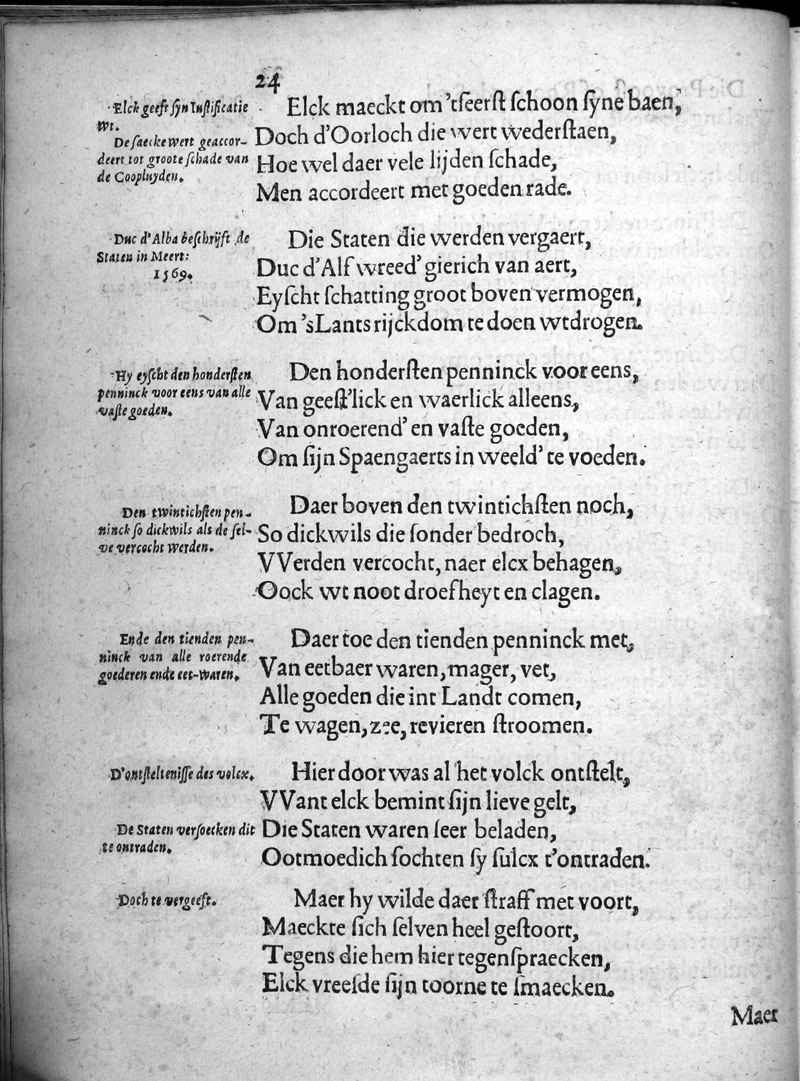 24
Elck geeft sijn Iustificatie
wt.
De saecke wert geaccor-
deert tot groote schade van
de Coopluyden.
Elck maeckt om 'tseerst schoon syne baen,
Doch d'Oorloch die wert wederstaen,
Hoe wel daer vele lijden schade,
Men accordeert met goeden rade.
Duc d'Alba beschrijft de
Staten in Meert:
1569.
Die Staten die werden vergaert,
Duc d'Alf wreed' gierich van aert,
Eyscht schatting groot boven vermogen,
Om 'sLants rijckdom te doen wtdrogen.
Hy eyscht den hondersten
penninck voor eens van alle
vaste goeden.
Den hondersten penninck voor eens,
Van geest'lick en waerlick alleens,
Van onroerend' en vaste goeden,
Om sijn Spaengaerts in weeld' te voeden.
Den twintichsten pen-
ninck so dickwils als de sel-
ve vercocht werden.
Daer boven den twintichsten noch,
So dickwils die sonder bedroch,
VVerden vercocht, naer elcx behagen,
Oock wt noot droefheyt en clagen.
Ende den tienden pen-
ninck van alle roerende
goederen ende eet-waren.
Daer toe den tienden penninck met,
Van eetbaer waren, mager, vet,
Alle goeden die int Landt comen,
Te wagen, zee, revieren stroomen.
D'ontsteltenisse des volcx.
De Staten versoecken dit
te ontraden.
Hier door was al het volck ontstelt,
VVant elck bemint sijn lieve gelt,
Die Staten waren seer beladen,
Ootmoedich sochten sy sulcx t'ontraden.
Doch te vergeefs.
Maer hy wilde daer straff met voort,
Maeckte sich selven heel gestoort,
Tegens die hem hier tegenspraecken,
Elck vreesde sijn toorne te smaecken.
Maer